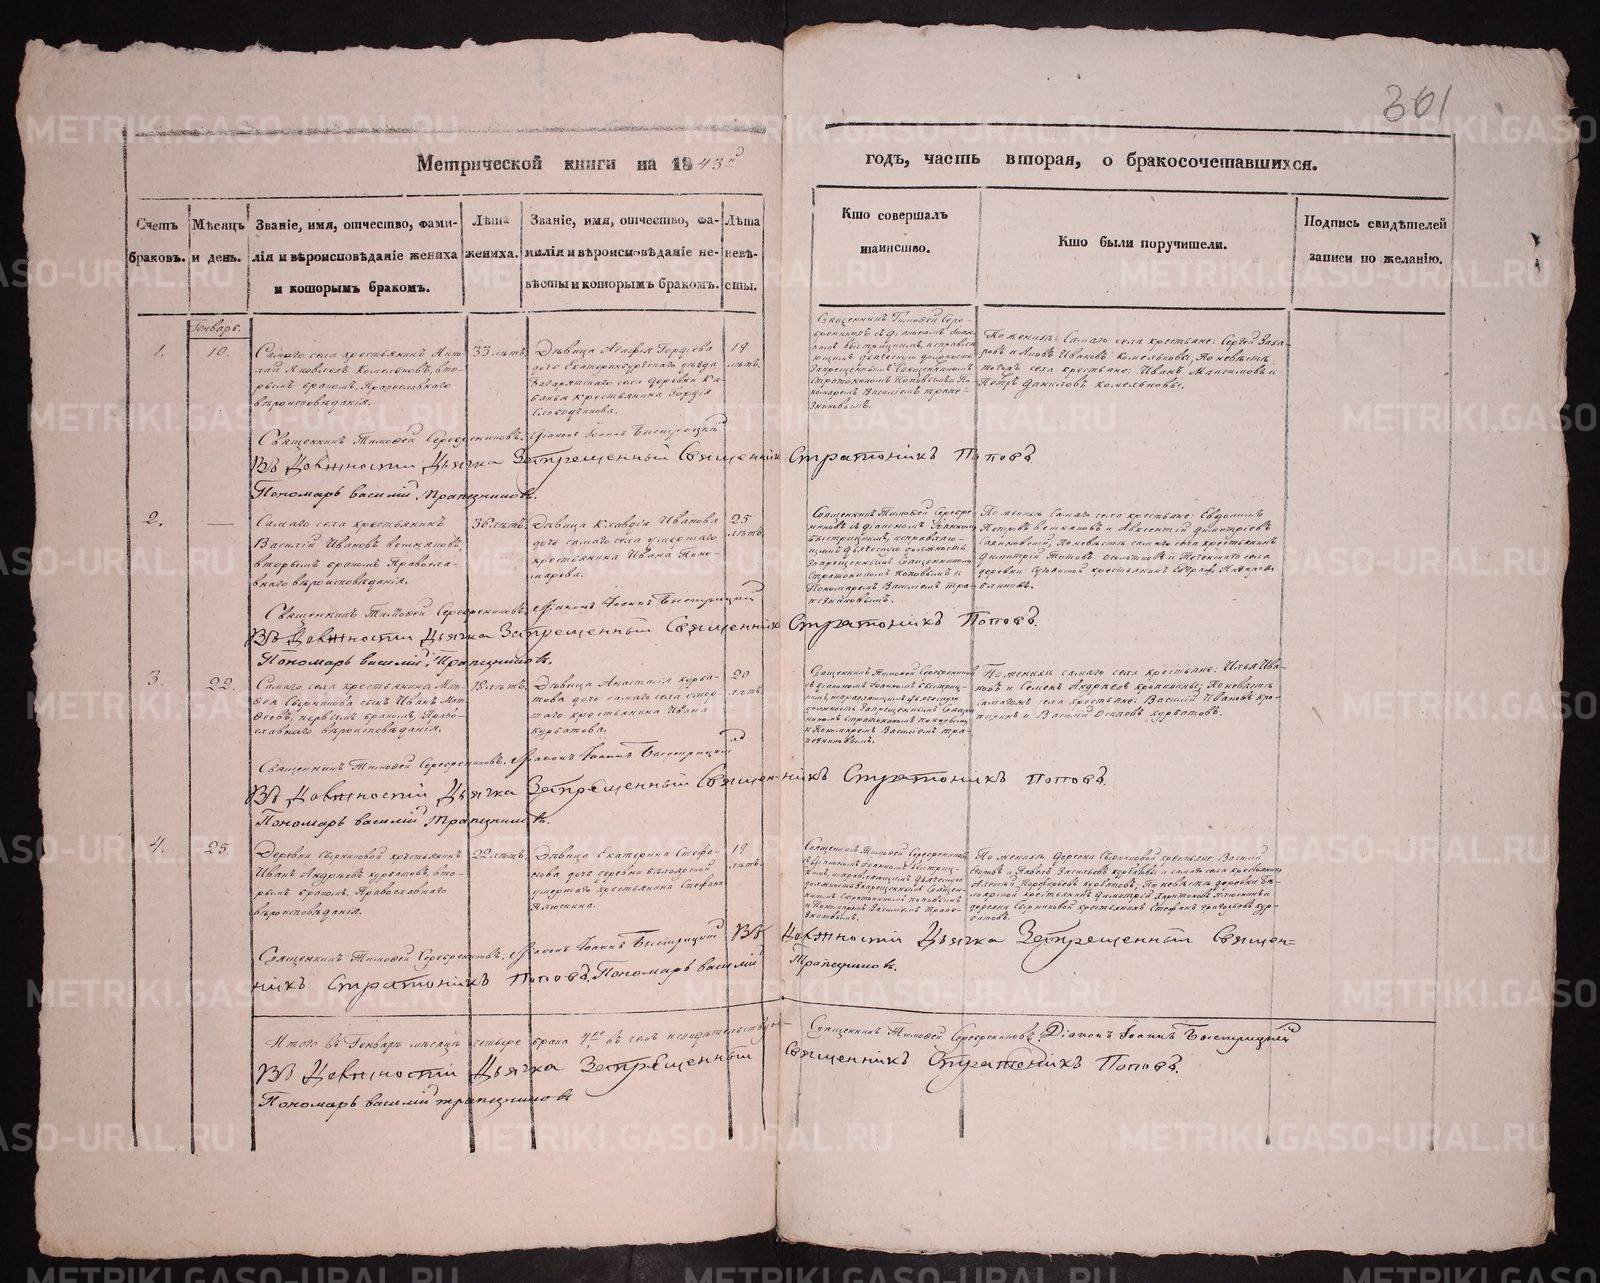 301
Метрической книги на 1843й годъ, часть вторая, о бракосочетавшихся.
Счетъ браковъ.
Мѣсяцъ и день.
Званіе, имя, отчество, фами-
лія и вѣроисповѣданіе жениха
и которымъ бракомъ.
Лѣта
жениха.
Званіе, имя, отчество, фа-
милія и вѣроисповѣданіе не-
вѣсты и которымъ бракомъ.
Лѣта
невѣ-
сты.
Кто совершалъ
таинство.
Кто были поручители.
Подпись свидѣтелей
записи по желанію.
Генварь.
1.
10.
Самаго села крестьянинъ Нико-
лай Яковлевъ Комельковъ, вто-
рымъ бракомъ, Православнаго
вѣроисповѣданія.
33 лѣтъ.
Дѣвица Агафія Гордѣева
дочь Екатеринбургскаго уѣзда
села деревни
крестьянина Гордѣя
19
лѣтъ.
Священникъ Тимофей Сере-
бренниковъ съ діакономъ Іоан-
номъ Быстрицкимъ, исправля-
ющимъ дьяческую должность
Запрещеннымъ Священникомъ
Стратоникомъ Поповымъ и По-
номаремъ Василіемъ Трапе-
зниковымъ.
По женихѣ: Самаго села крестьяне: Сергей Заха-
ровъ и Ивановъ Комельковы; По невѣстѣ
села крестьяне: Иванъ Максимовъ и
Петръ Даниловъ Комельковы.
Священникъ Тимофей Серебренниковъ. Діаконъ Іоаннъ Быстрицкій
Въ Должности Дьячка Запрещенный Священникъ Стратоникъ Поповъ.
Пономарь Василій Трапезниковъ.
2.
—
Самаго села крестьянинъ
Василій Ивановъ
вторымъ бракомъ Правосла-
внаго вѣроисповѣданія.
36 лѣтъ.
Дѣвица Клавдія Иванова
дочь самаго села умершаго
крестьянина Ивана Поно-
марева.
25
лѣтъ.
Священникъ Тимофей Серебре-
никовъ съ діакономъ Іоанномъ
Быстрицкимъ, исправляю-
щимъ дьяческую должность
Запрещеннымъ Священникомъ
Стратоникомъ Поповымъ и
Пономаремъ Василіемъ Тра-
пезниковымъ.
По женихѣ Самаго села крестьяне: Евдокимъ
Петровъ и Авксентій Дмитріевъ
По невѣстѣ самаго села крестьянинъ
Димитрій Титовъ и села
деревни крестьянинъ
Священникъ Тимофей Серебренниковъ. Діаконъ Іоаннъ Быстрицкій
Въ Должности Дьячка Запрещенный Священникъ Стратоникъ Поповъ.
Пономарь Василій Трапезниковъ.
3.
22.
Самаго села крестьянина Мат-
фея сынъ Иванъ Мат-
феевъ, первымъ бракомъ, Право-
славнаго вѣроисповѣданія.
18 лѣтъ.
Дѣвица Анастасія Курба-
това дочь самаго села умер-
шаго крестьянина Ивана
Курбатова.
20
лѣтъ.
Священникъ Тимофей Серебренниковъ
съ діакономъ Іоанномъ Быстриц-
кимъ, исправляющимъ дьяческую
должность Запрещеннымъ Священ-
никомъ Стратоникомъ Поповымъ
и Пономаремъ Василіемъ Тра-
пезниковымъ.
По женихѣ самаго села крестьяне: Илья Ива-
новъ и Семенъ Андреевъ По невѣстѣ
села крестьяне: Василій Ивановъ
и Василій Осиповъ Курбатовъ.
Священникъ Тимофей Серебренниковъ. Діаконъ Іоаннъ Быстрицкій
Въ Должности Дьячка Запрещенный Священникъ Стратоникъ Поповъ.
Пономарь Василій Трапезниковъ.
4.
25.
Деревни крестьянинъ
Иванъ Андреевъ вто-
рымъ бракомъ, Православнаго
вѣроисповѣданія.
22 лѣтъ.
Дѣвица Екатерина Стефа-
нова дочь деревни
умершаго крестьянина Стефана
19
лѣтъ.
Священникъ Тимофей Серебренниковъ
съ Діакономъ Іоанномъ Быстриц-
кимъ, исправляющимъ дьяческую
должность Запрещеннымъ Священ-
никомъ Стратоникомъ Поповымъ
и Пономаремъ Василіемъ Трапе-
зниковымъ.
По женихѣ деревни крестьяне: Василій
и Павелъ Васильевъ Курбатовы и самаго села крестьянинъ
Курбатовъ; По невѣстѣ деревни
крестьянинъ Димитрій и
деревни крестьянинъ Стефанъ Григорьевъ Кур-
батовъ.
Священникъ Тимофей Серебренниковъ. Діаконъ Іоаннъ Быстрицкій Въ Должности Дьячка Запрещенный Священ=
никъ Стратоникъ Поповъ. Пономарь Василій Трапезниковъ.
Итого въ Генварѣ мѣсяцѣ четыре брака 4ре въ чемъ и свидѣтельствуемъ Священникъ Тимофей Серебренниковъ. Діаконъ Іоаннъ Быстрицкій
Въ Должности Дьячка Запрещенный Священникъ Стратоникъ Поповъ.
Пономарь Василій Трапезниковъ
METRIKI.GASO-URAL.RU